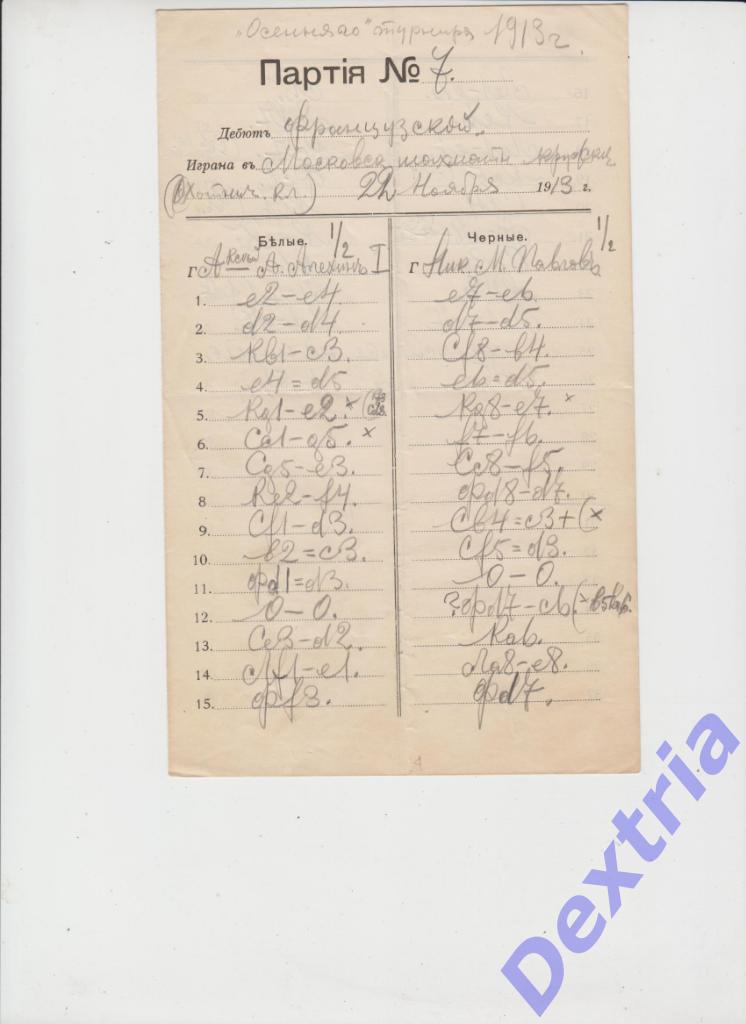 „Осенняго" турнира 1913 г.
Партія № 7.
Дебютъ Французской.
Играна въ Московск. шахматн. кружкѣ
(Охотнич. кл.) 22 Ноября 1913 г.
Бѣлые. 1/2 Черные. 1/2
г А–ксѣй А. Алехинъ I г Ник. М. Павловъ
1. e2–e4. e7–e6.
2. d2–d4. d7–d5.
3. Кв1–c3. Cf8–в4.
4. e4=d5 e6=d5.
5. Кg1–e2. × Кg8–e7. ×
6. Cc1–g5. × f7–f6.
7. Cg5–e3. Cc8–f5.
8. Кe2–f4. Фd8–d7.
9. Cf1–d3. Cв4=c3+(×
10. в2=c3. Cf5=d3.
11. Фd1=d3. 0–0.
12. 0–0. ?Фd7–c6.
13. Ce3–d2. Кa6.
14. Лf1–e1. Лa8–e8.
15. Фf3. Фd7.
Dextria